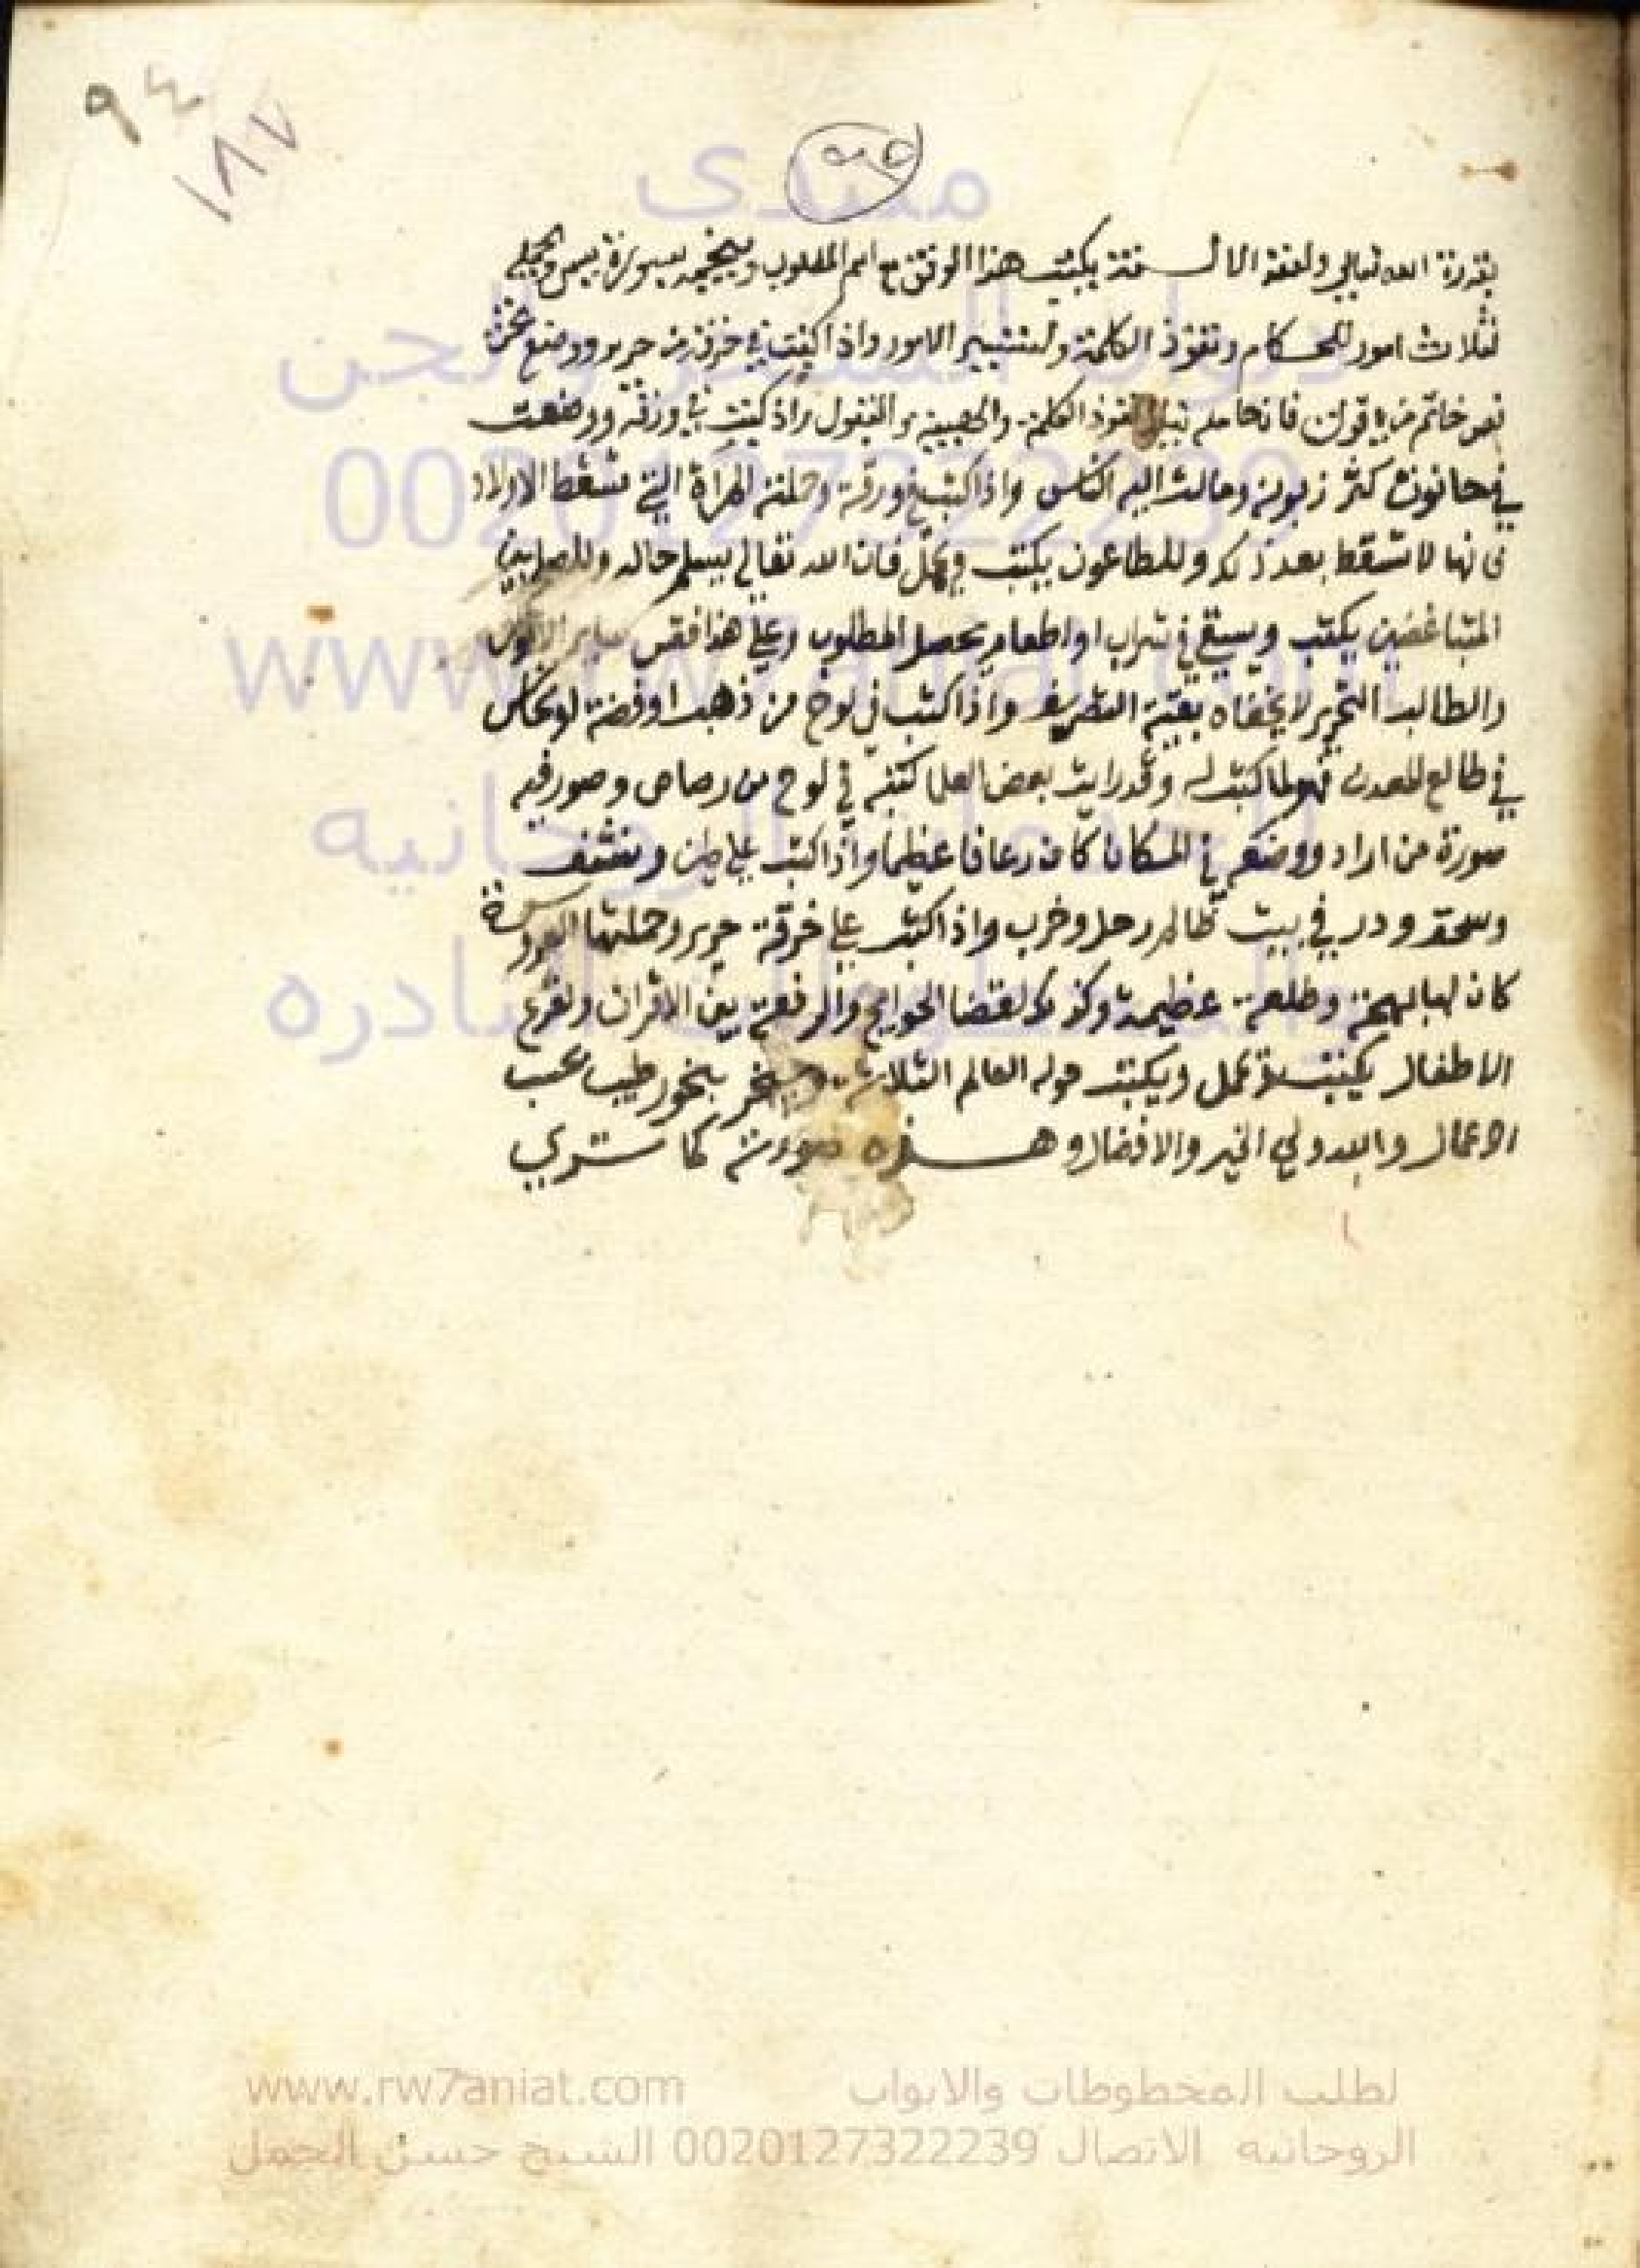 ٩٤
١٨٧
٩٥
بقدرة الله تعالى ولعقد الالسنة يكتب هذا الوفق مع اسم المطلوب ويبخر بسورة يس ويحمل
لثلاث امور للحكام ونفوذ الكلمة ولتيسير الامور واذا كتب في خرقة من حرير ووضع تحت
فص خاتم من ياقوت فان حامله ينال نفوذ الكلمة والهيبة والقبول واذا كتب في ورقة ووضعت
في حانوت كثر زبونه ومالت اليه الناس واذا كتب في ورقة وحملته المراة التي تسقط الاولاد
فانها لا تسقط بعد ذلك وللطاعون يكتب ويحمل فان الله تعالى يسلم حاله وللصلح بين
المتباغضين يكتب ويسقى في شراب او اطعام يحصل المطلوب وعلى هذا فقس ساير الامور
والطالب النحرير لا يخفاه بقية التصريف واذا كتب في لوح من ذهب او فضة او نحاس
في طالع المعدن فهو لما كتب له وقد رايت بعض العلما كتبه في لوح من رصاص وصور فيه
صورة من اراد ووضعه في المكان كان رعافا عظيما واذا كتب على طين ونشف
وسحق ودر في بيت ظالم رحل وخرب واذا كتب على خرقة حرير وحملتها العروسة
كان لها بهجة وطلعة عظيمة وكذلك لقضا الحوايج والرفعة بين الاقران ولفزع
الاطفال يكتب ويحمل ويكتب حوله العالم الثلاث ويبخر ببخور طيب بحسب
الاعمال والله ولي الخير والافضال وهذه صورته كما ستري
منتدى
002 0127322239
www.rw7aniat.com
www.rw7aniat.com لطلب المخطوطات والابواب
الروحانيه الاتصال 0020127322239 الشيخ حسن الجمل